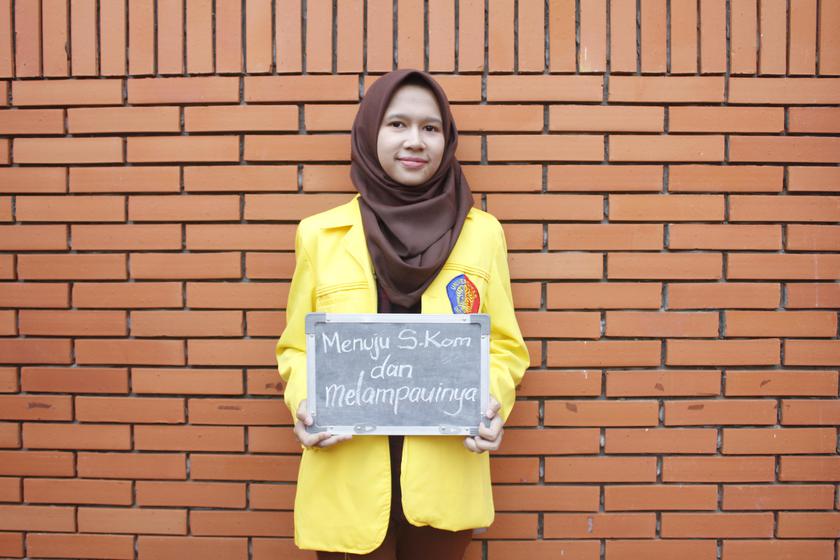 Menuju S.Kom
dan
Melampauinya